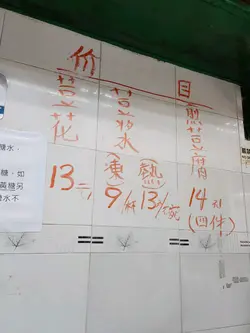 价目
荳花
13元
荳浆
凍 熱
9/杯 13/碗
煎荳腐
14元
(四件)
糖水，
糖，如
黃糖另
水不